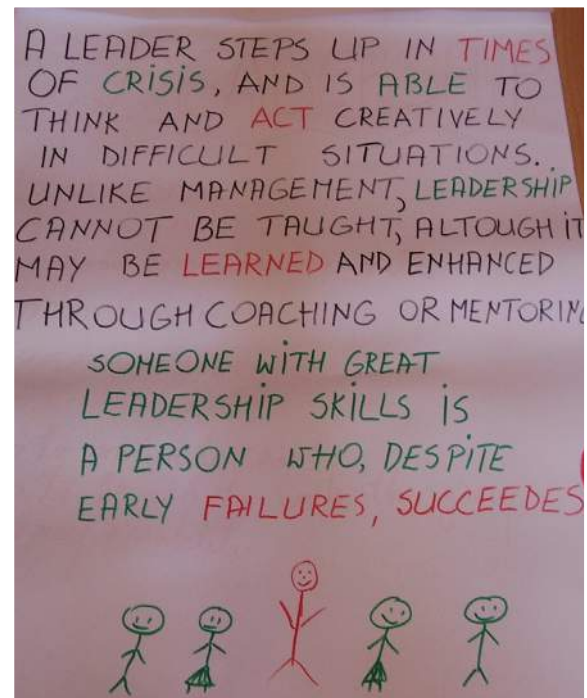 A LEADER STEPS UP IN TIMES
OF CRISIS, AND IS ABLE TO
THINK AND ACT CREATIVELY
IN DIFFICULT SITUATIONS.
UNLIKE MANAGEMENT, LEADERSHIP
CANNOT BE TAUGHT, ALTOUGH IT
MAY BE LEARNED AND ENHANCED
THROUGH COACHING OR MENTORING
SOMEONE WITH GREAT
LEADERSHIP SKILLS IS
A PERSON WHO, DESPITE
EARLY FAILURES, SUCCEEDES